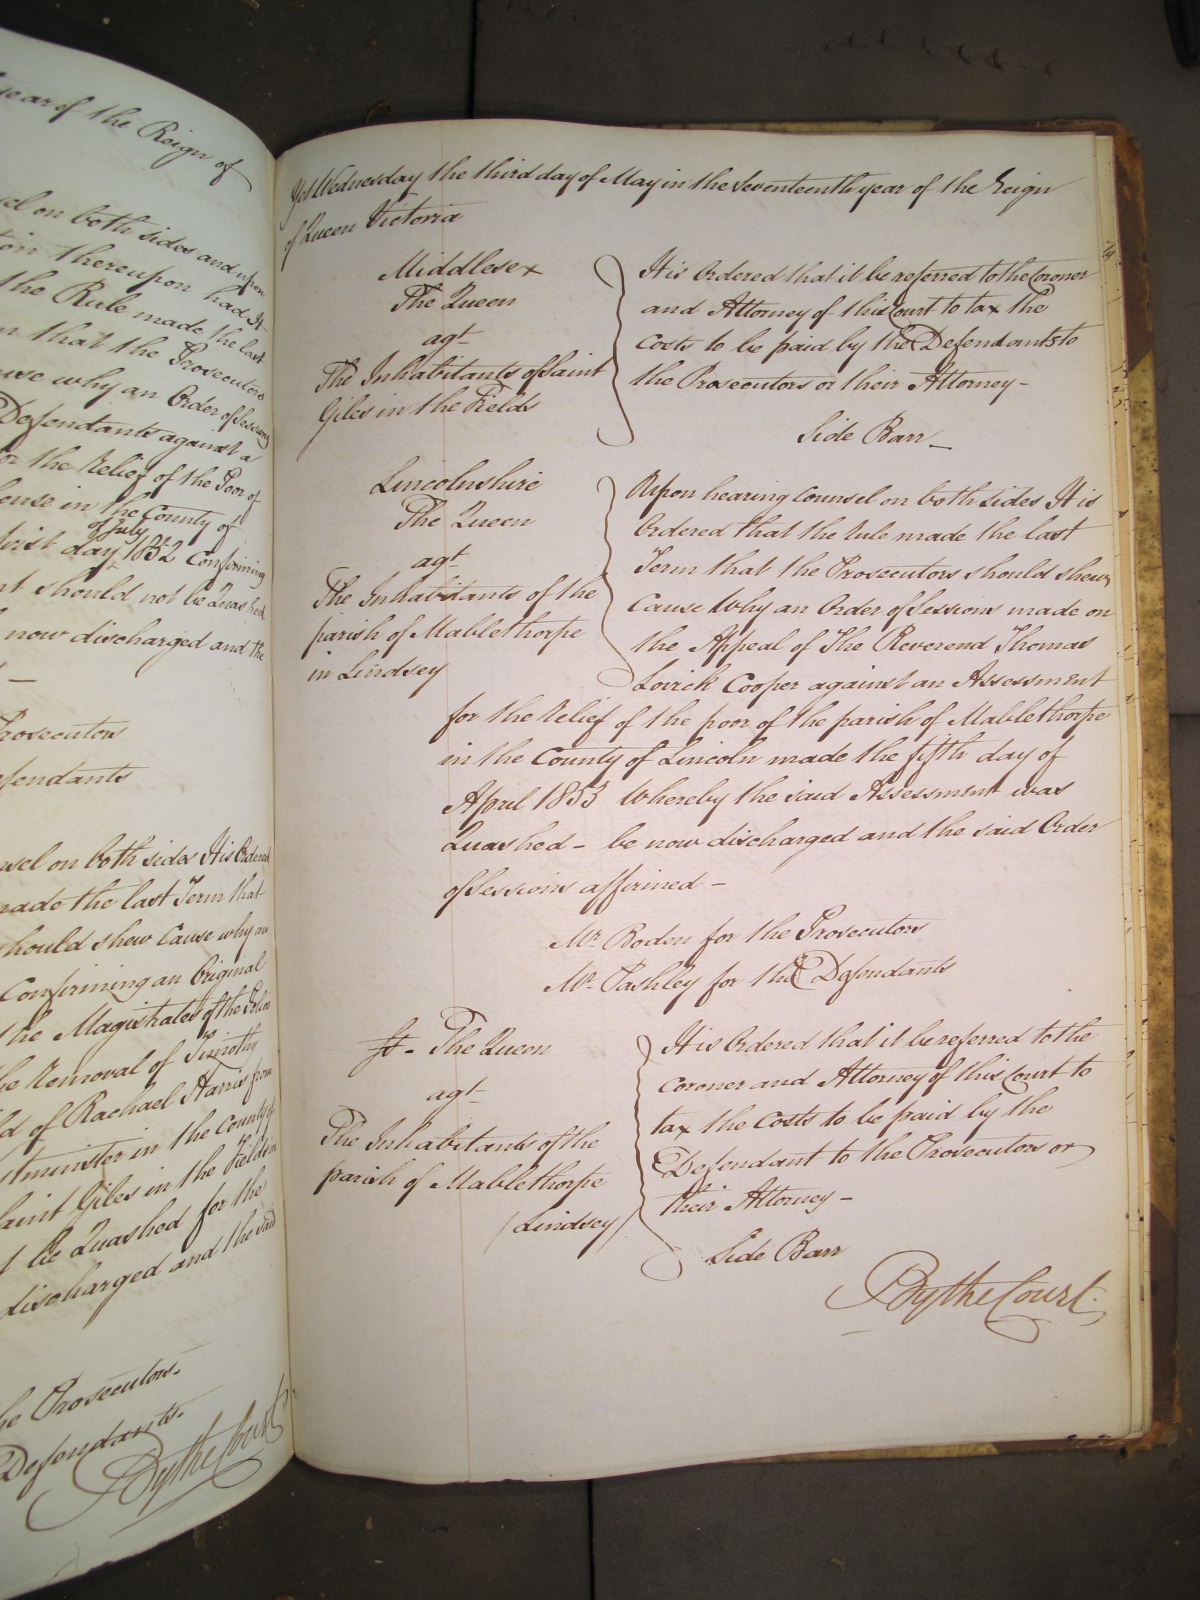 year of the Reign of
el on both sides and upon
tion thereupon had It
the Rule made the last
m that the Prosecutors
use why an Order of Sessions
Defendants against a
or the Relief of the Poor of
ouse in the County of
first day of July 1852 Confirming
nt should not be Quashed
now discharged and the
Prosecutors
efendants
nsel on both sides It is Ordered
made the last Term that
should shew Cause why an
Confirming an Original
the Magistrates of the Police
he Removal of Timothy
d of Rachael Harris from
stminster in the County of
aint Giles in the Fields in
t be Quashed for the
discharged and the said
he Prosecutors.
Defendants.
By the Court
Yet Wednesday the third day of May in the Seventeenth year of the Reign
of Queen Victoria
Middlesex
The Queen
agt
The Inhabitants of Saint
Giles in the Fields
It is Ordered that it be referred to the Coroner
and Attorney of this Court to tax the
Costs to be paid by the Defendants to
the Prosecutors or their Attorney -
Side Barr
Lincolnshire
The Queen
agt
The Inhabitants of the
parish of Mablethorpe
in Lindsey
Upon hearing Counsel on both sides It is
Ordered that the Rule made the last
Term that the Prosecutors should shew
Cause Why an Order of Sessions made on
the Appeal of The Reverend Thomas
Lovick Cooper against an Assessment
for the relief of the poor of the parish of Mablethorpe
in the County of Lincoln made the fifth day of
April 1853 Whereby the said Assessment was
Quashed - be now discharged and the said Order
of Sessions affirmed -
Mr. Boden for the Prosecutors
Mr. Pashley for the Defendants
The Queen
agt
The Inhabitants of the
parish of Mablethorpe
(Lindsey)
It is Ordered that it be referred to the
Coroner and Attorney of this Court to
tax the Costs to be paid by the
Defendant to the Prosecutors or
their Attorney -
Side Barr
By the Court.